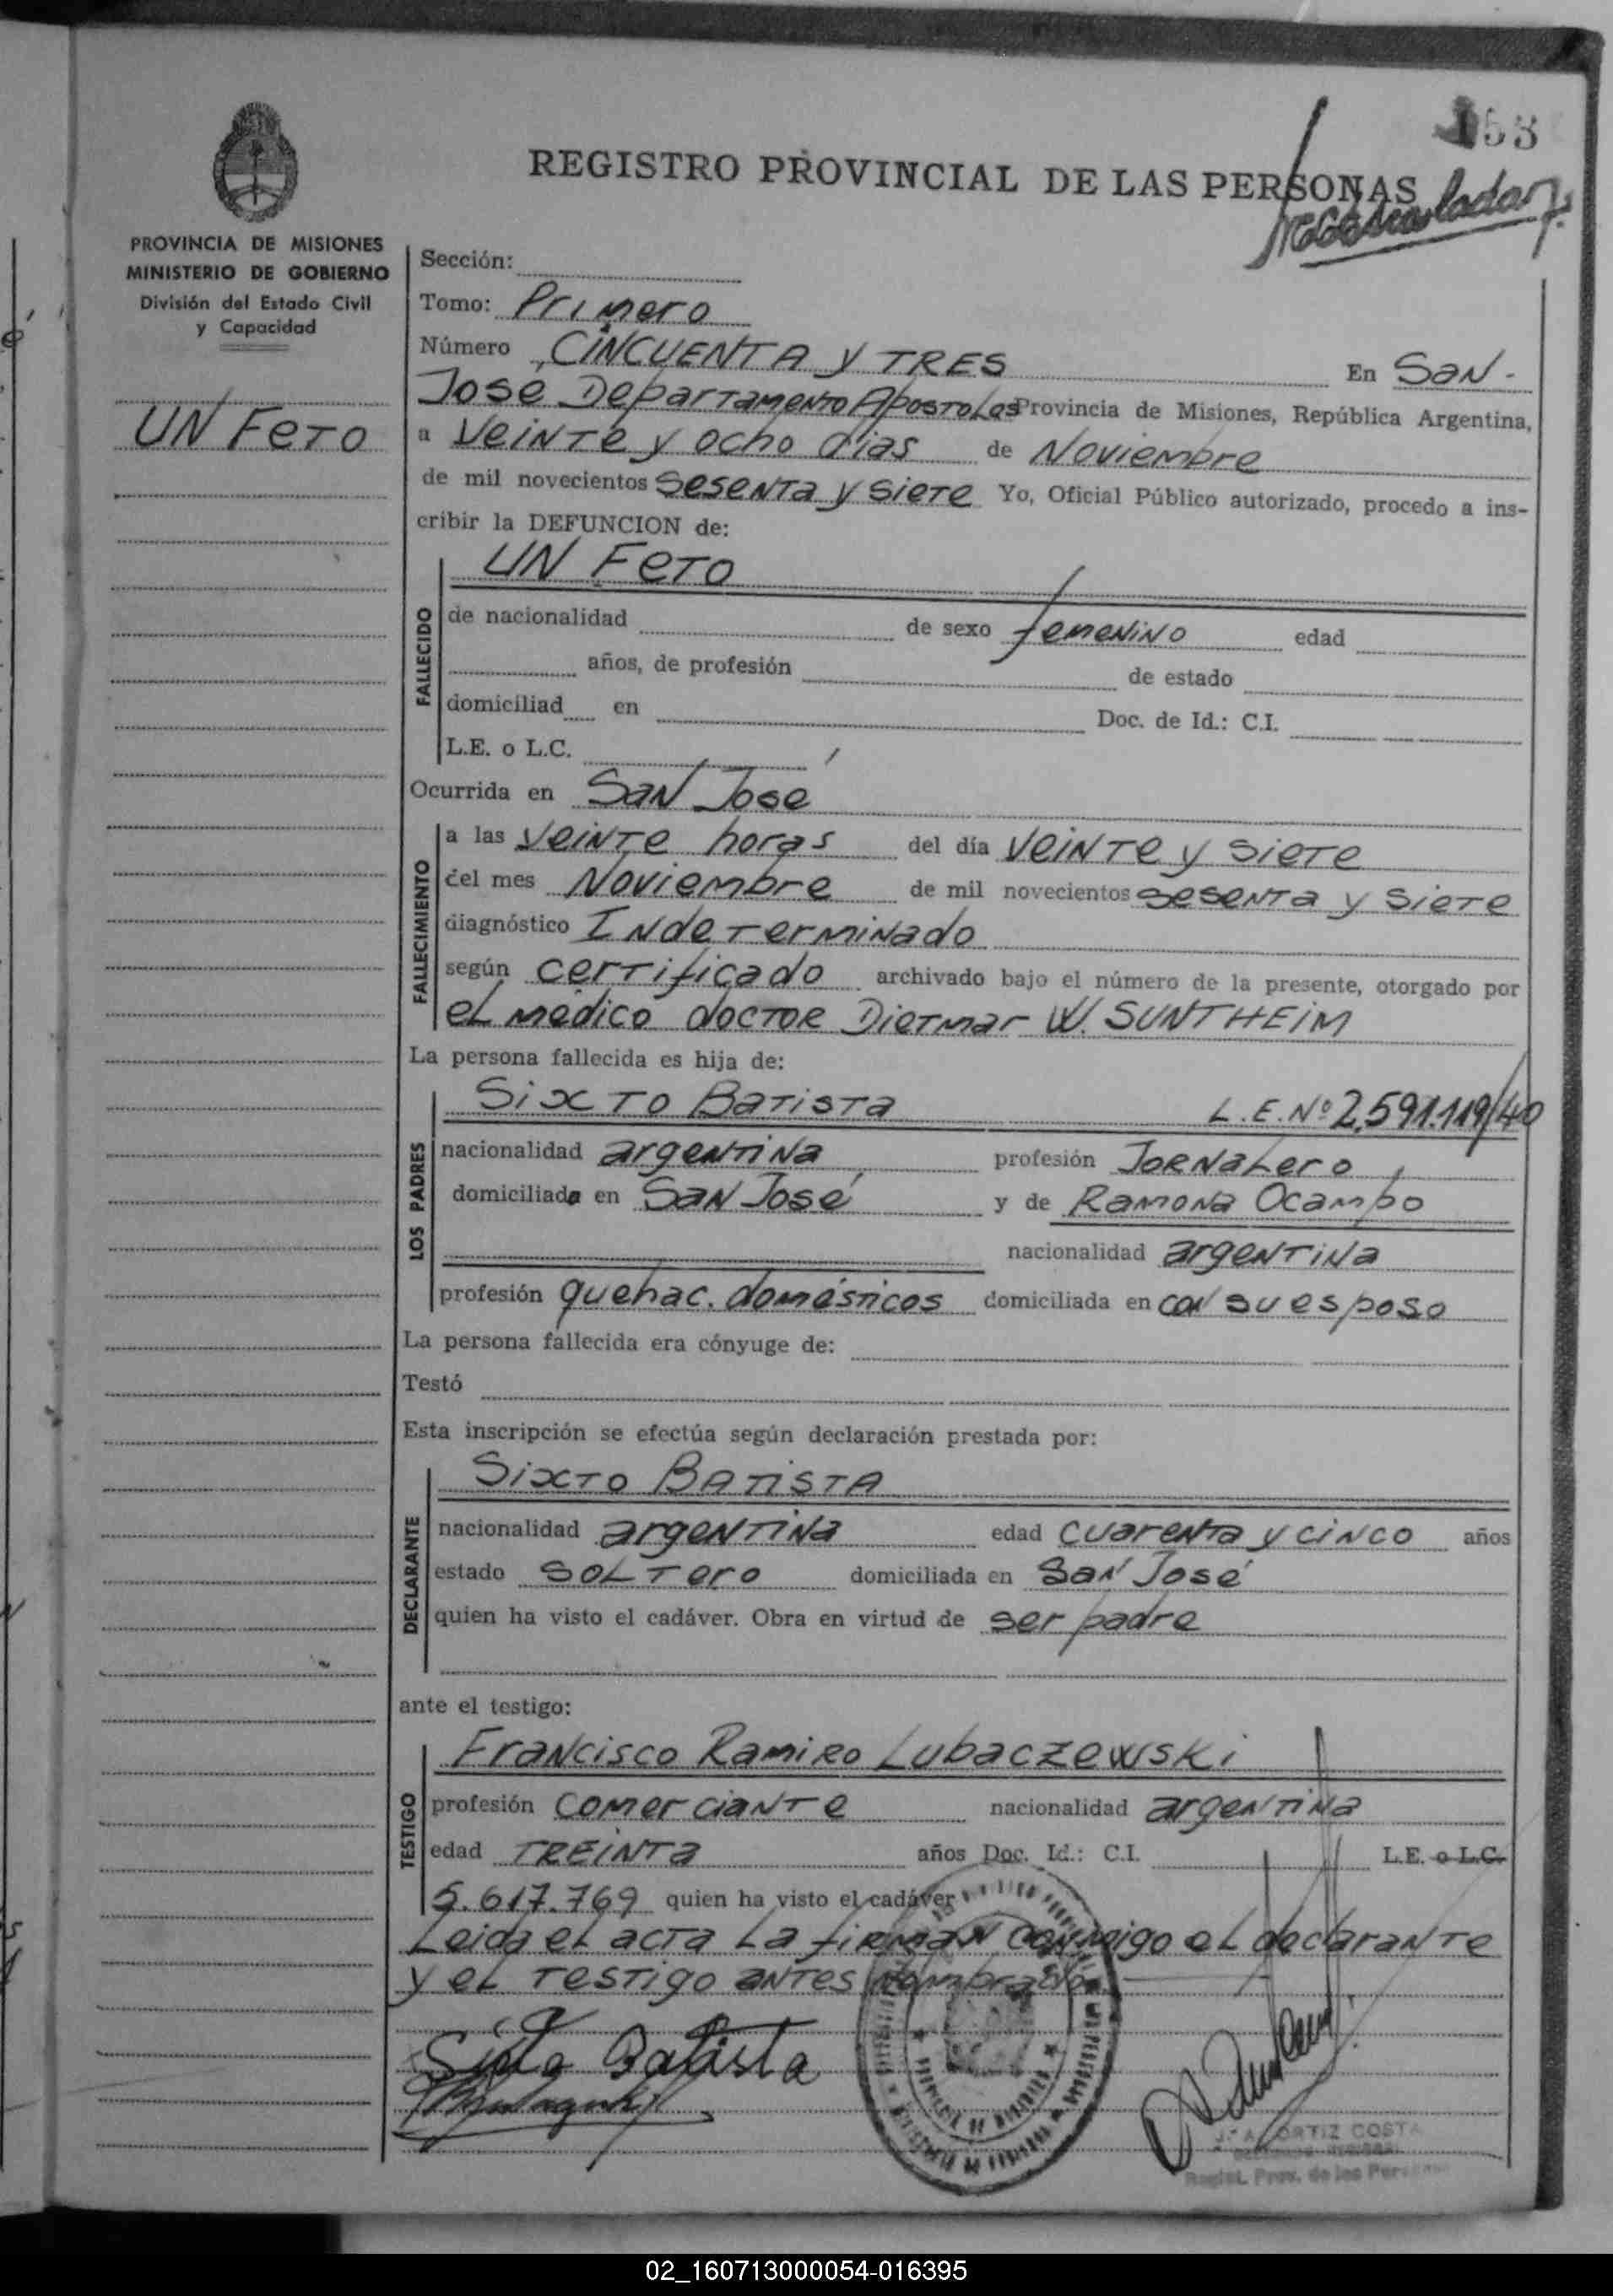 153
REGISTRO PROVINCIAL DE LAS PERSONAS
PROVINCIA DE MISIONES
MINISTERIO DE GOBIERNO
División del Estado Civil
y Capacidad
UN Feto
Sección:
Tomo: Primero
Número CINCUENTA y TRES En San-
Jose Departamento Apostoles Provincia de Misiones, República Argentina,
a Veinte y ocho dias de Noviembre
de mil novecientos Sesenta y siete Yo, Oficial Público autorizado, procedo a ins-
cribir la DEFUNCION de:
UN Feto
FALLECIDO
de nacionalidad de sexo femenino edad
años, de profesión de estado
domiciliad en Doc. de Id.: C.I.
L.E. o L.C.
Ocurrida en San José
FALLECIMIENTO
a las veinte horas del día veinte y siete
del mes Noviembre de mil novecientos sesenta y siete
diagnóstico Indeterminado
según certificado archivado bajo el número de la presente, otorgado por
el médico doctor Dietmar W. SUNTHEIM
La persona fallecida es hija de:
LOS PADRES
Sixto Batista L.E. Nº 2.591.119/40
nacionalidad argentina profesión Jornalero
domiciliada en San José y de Ramona Ocampo
nacionalidad argentina
profesión quehac. domésticos domiciliada en con su esposo
La persona fallecida era cónyuge de:
Testó
Esta inscripción se efectúa según declaración prestada por:
DECLARANTE
Sixto BATISTA
nacionalidad argentina edad cuarenta y cinco años
estado soltero domiciliada en San José
quien ha visto el cadáver. Obra en virtud de ser padre
ante el testigo:
TESTIGO
Francisco Ramiro Lubaczewski
profesión comerciante nacionalidad argentina
edad TREINTA años Doc. Id.: C.I. L.E. o L.C.
5.617.769 quien ha visto el cadáver
Leida el acta la firman conmigo el declarante
y el testigo antes nombrado
Sixto Batista
ORTIZ COSTA
02_160713000054-016395